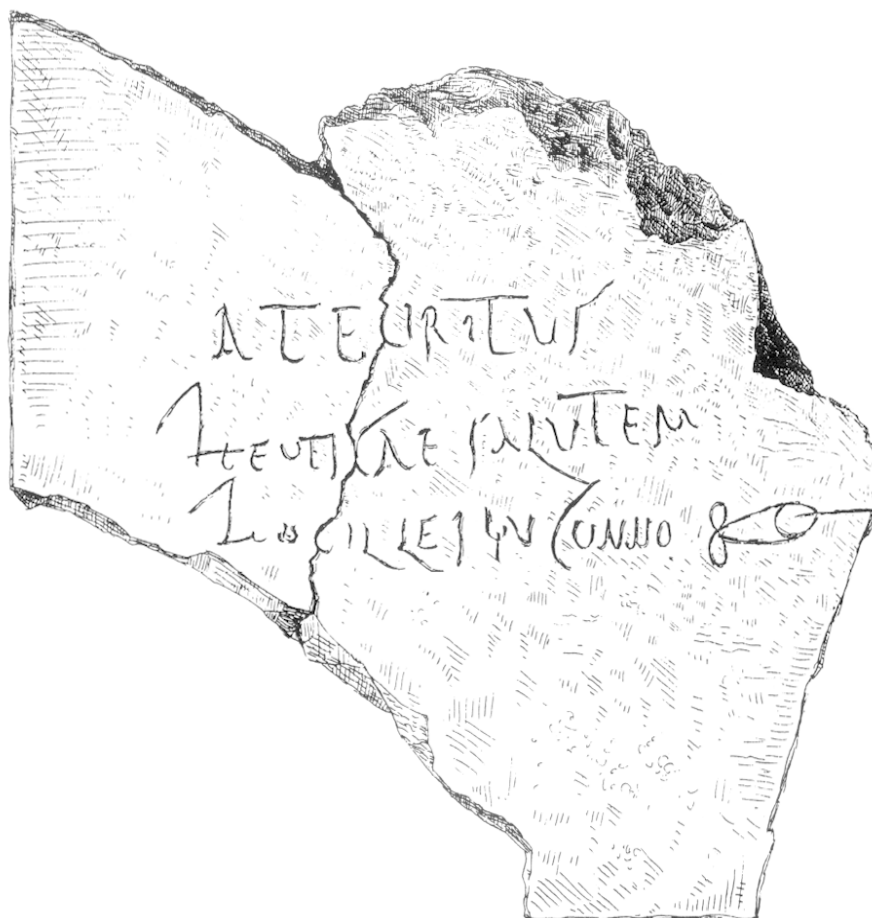 ATEURITUS
HEUTICAE SALUTEM
HOC ILLEI CUNNO